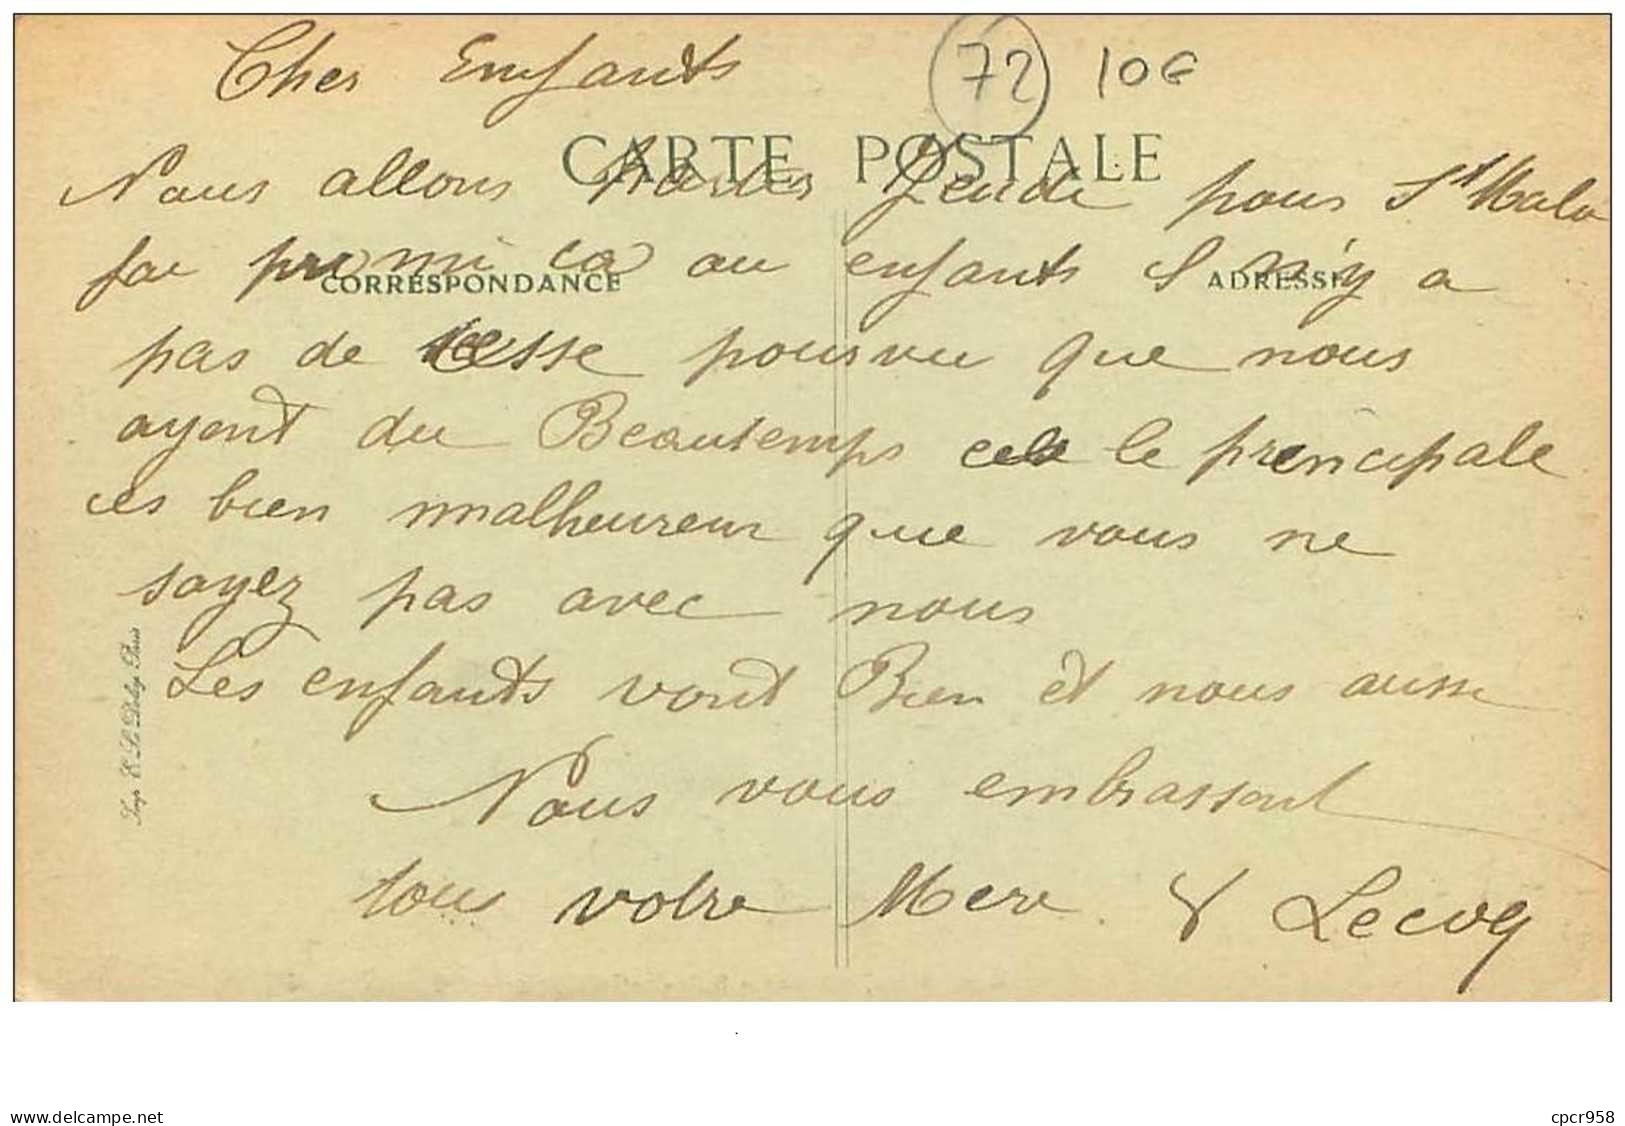 Cher Enfants
72 10€
CARTE POSTALE
Nous allons partir Jeudi pour St Malo
CORRESPONDANCE
ADRESSE
jai promi ca au enfants I n'y a
pas de cesse pourvu que nous
ayont du Beautemps cela le principale
ces bien malheureux que vous ne
soyez pas avec nous
Les enfants vont Bien et nous aussi
Nous vous embrassont
tous votre Mere & Lecoq
Imp. E. Le Deley Paris
delcampe.net
cpcr958